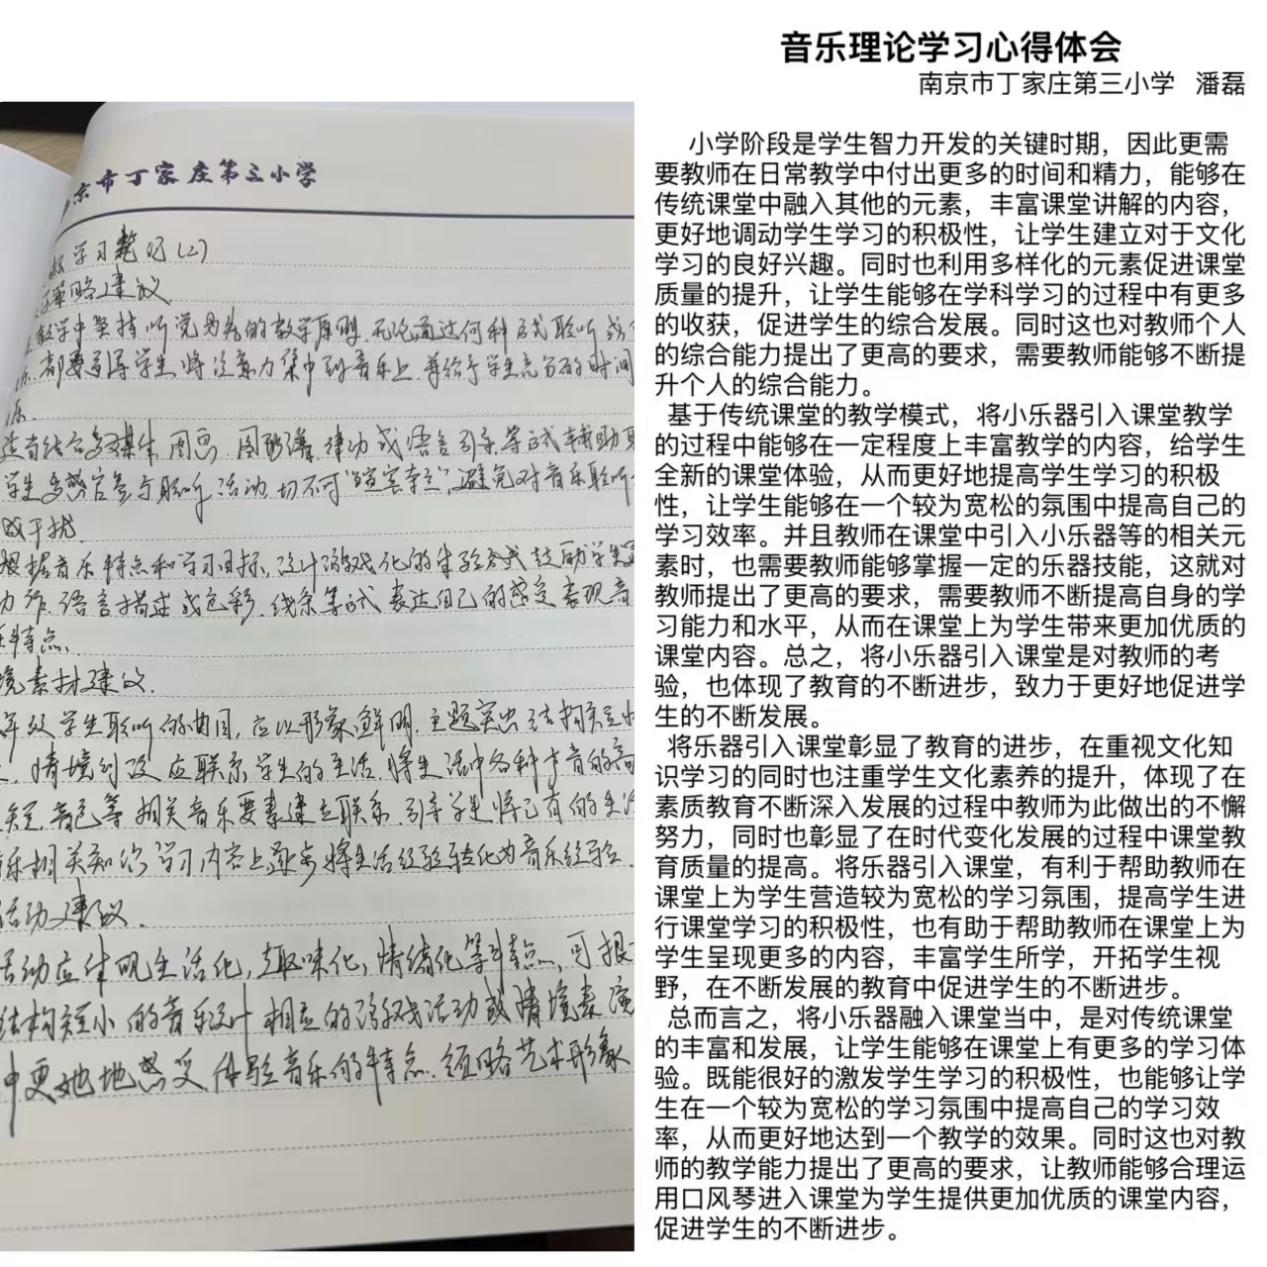 南京市丁家庄第三小学
学习笔记(2)
策略建议
教学中坚持听觉为先的教学原则,无论通过何种方式聆听
都要引导学生将注意力集中到音乐上,并给予学生充分的时间
乐.
适当结合多媒体、图画、图形谱、律动或语言引导等方式辅助
学生多感官参与聆听活动,切不可“喧宾夺主”,避免对音乐聆听
成干扰.
根据音乐特点和学习目标,设计游戏化的体验方式鼓励学生
动作、语言描述或色彩、线条等方式表达自己的感受表现音
特点.
境素材建议.
年级学生聆听的曲目,应以形象鲜明、主题突出、结构短小
情境创设应联系学生的生活,将生活中各种声音的高
短、音色等相关音乐要素建立联系,引导学生将已有的生活
乐相关知识学习内容上,逐步将生活经验转化为音乐经验.
活动建议.
活动应体现生活化,趣味化,情绪化等特点,可根
结构短小的音乐设计相应的游戏活动或情境表演
中更好地感受、体验音乐的特点,领略艺术形象
音乐理论学习心得体会
南京市丁家庄第三小学 潘磊
小学阶段是学生智力开发的关键时期，因此更需
要教师在日常教学中付出更多的时间和精力，能够在
传统课堂中融入其他的元素，丰富课堂讲解的内容，
更好地调动学生学习的积极性，让学生建立对于文化
学习的良好兴趣。同时也利用多样化的元素促进课堂
质量的提升，让学生能够在学科学习的过程中有更多
的收获，促进学生的综合发展。同时这也对教师个人
的综合能力提出了更高的要求，需要教师能够不断提
升个人的综合能力。
基于传统课堂的教学模式，将小乐器引入课堂教学
的过程中能够在一定程度上丰富教学的内容，给学生
全新的课堂体验，从而更好地提高学生学习的积极
性，让学生能够在一个较为宽松的氛围中提高自己的
学习效率。并且教师在课堂中引入小乐器等的相关元
素时，也需要教师能够掌握一定的乐器技能，这就对
教师提出了更高的要求，需要教师不断提高自身的学
习能力和水平，从而在课堂上为学生带来更加优质的
课堂内容。总之，将小乐器引入课堂是对教师的考
验，也体现了教育的不断进步，致力于更好地促进学
生的不断发展。
将乐器引入课堂彰显了教育的进步，在重视文化知
识学习的同时也注重学生文化素养的提升，体现了在
素质教育不断深入发展的过程中教师为此做出的不懈
努力，同时也彰显了在时代变化发展的过程中课堂教
育质量的提高。将乐器引入课堂，有利于帮助教师在
课堂上为学生营造较为宽松的学习氛围，提高学生进
行课堂学习的积极性，也有助于帮助教师在课堂上为
学生呈现更多的内容，丰富学生所学，开拓学生视
野，在不断发展的教育中促进学生的不断进步。
总而言之，将小乐器融入课堂当中，是对传统课堂
的丰富和发展，让学生能够在课堂上有更多的学习体
验。既能很好的激发学生学习的积极性，也能够让学
生在一个较为宽松的学习氛围中提高自己的学习效
率，从而更好地达到一个教学的效果。同时这也对教
师的教学能力提出了更高的要求，让教师能够合理运
用口风琴进入课堂为学生提供更加优质的课堂内容，
促进学生的不断进步。